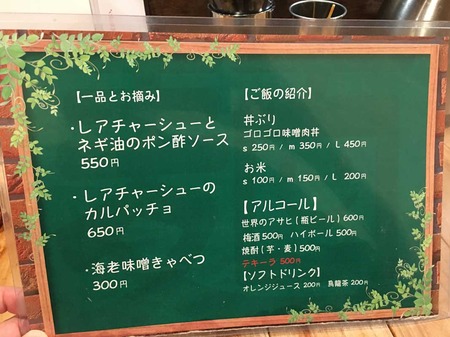 【一品とお摘み】
・レアチャーシューと
ネギ油のポン酢ソース
550円
・レアチャーシューの
カルパッチョ
650円
・海老味噌きゃべつ
300円
【ご飯の紹介】
丼ぶり
ゴロゴロ味噌肉丼
s 250円 / m 350円 / L 450円
お米
s 100円 / m 150円 / L 200円
【アルコール】
世界のアサヒ(瓶ビール)600円
梅酒 500円 ハイボール 500円
焼酎(芋・麦) 500円
テキーラ 500円
【ソフトドリンク】
オレンジジュース 200円 烏龍茶 200円